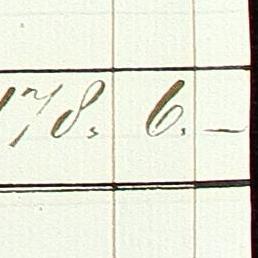 178. 6. —